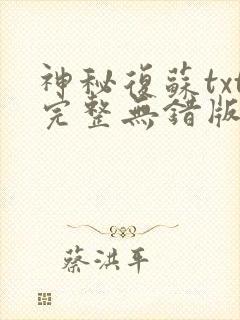 神秘復蘇txt
完整無錯版
蔡洪平